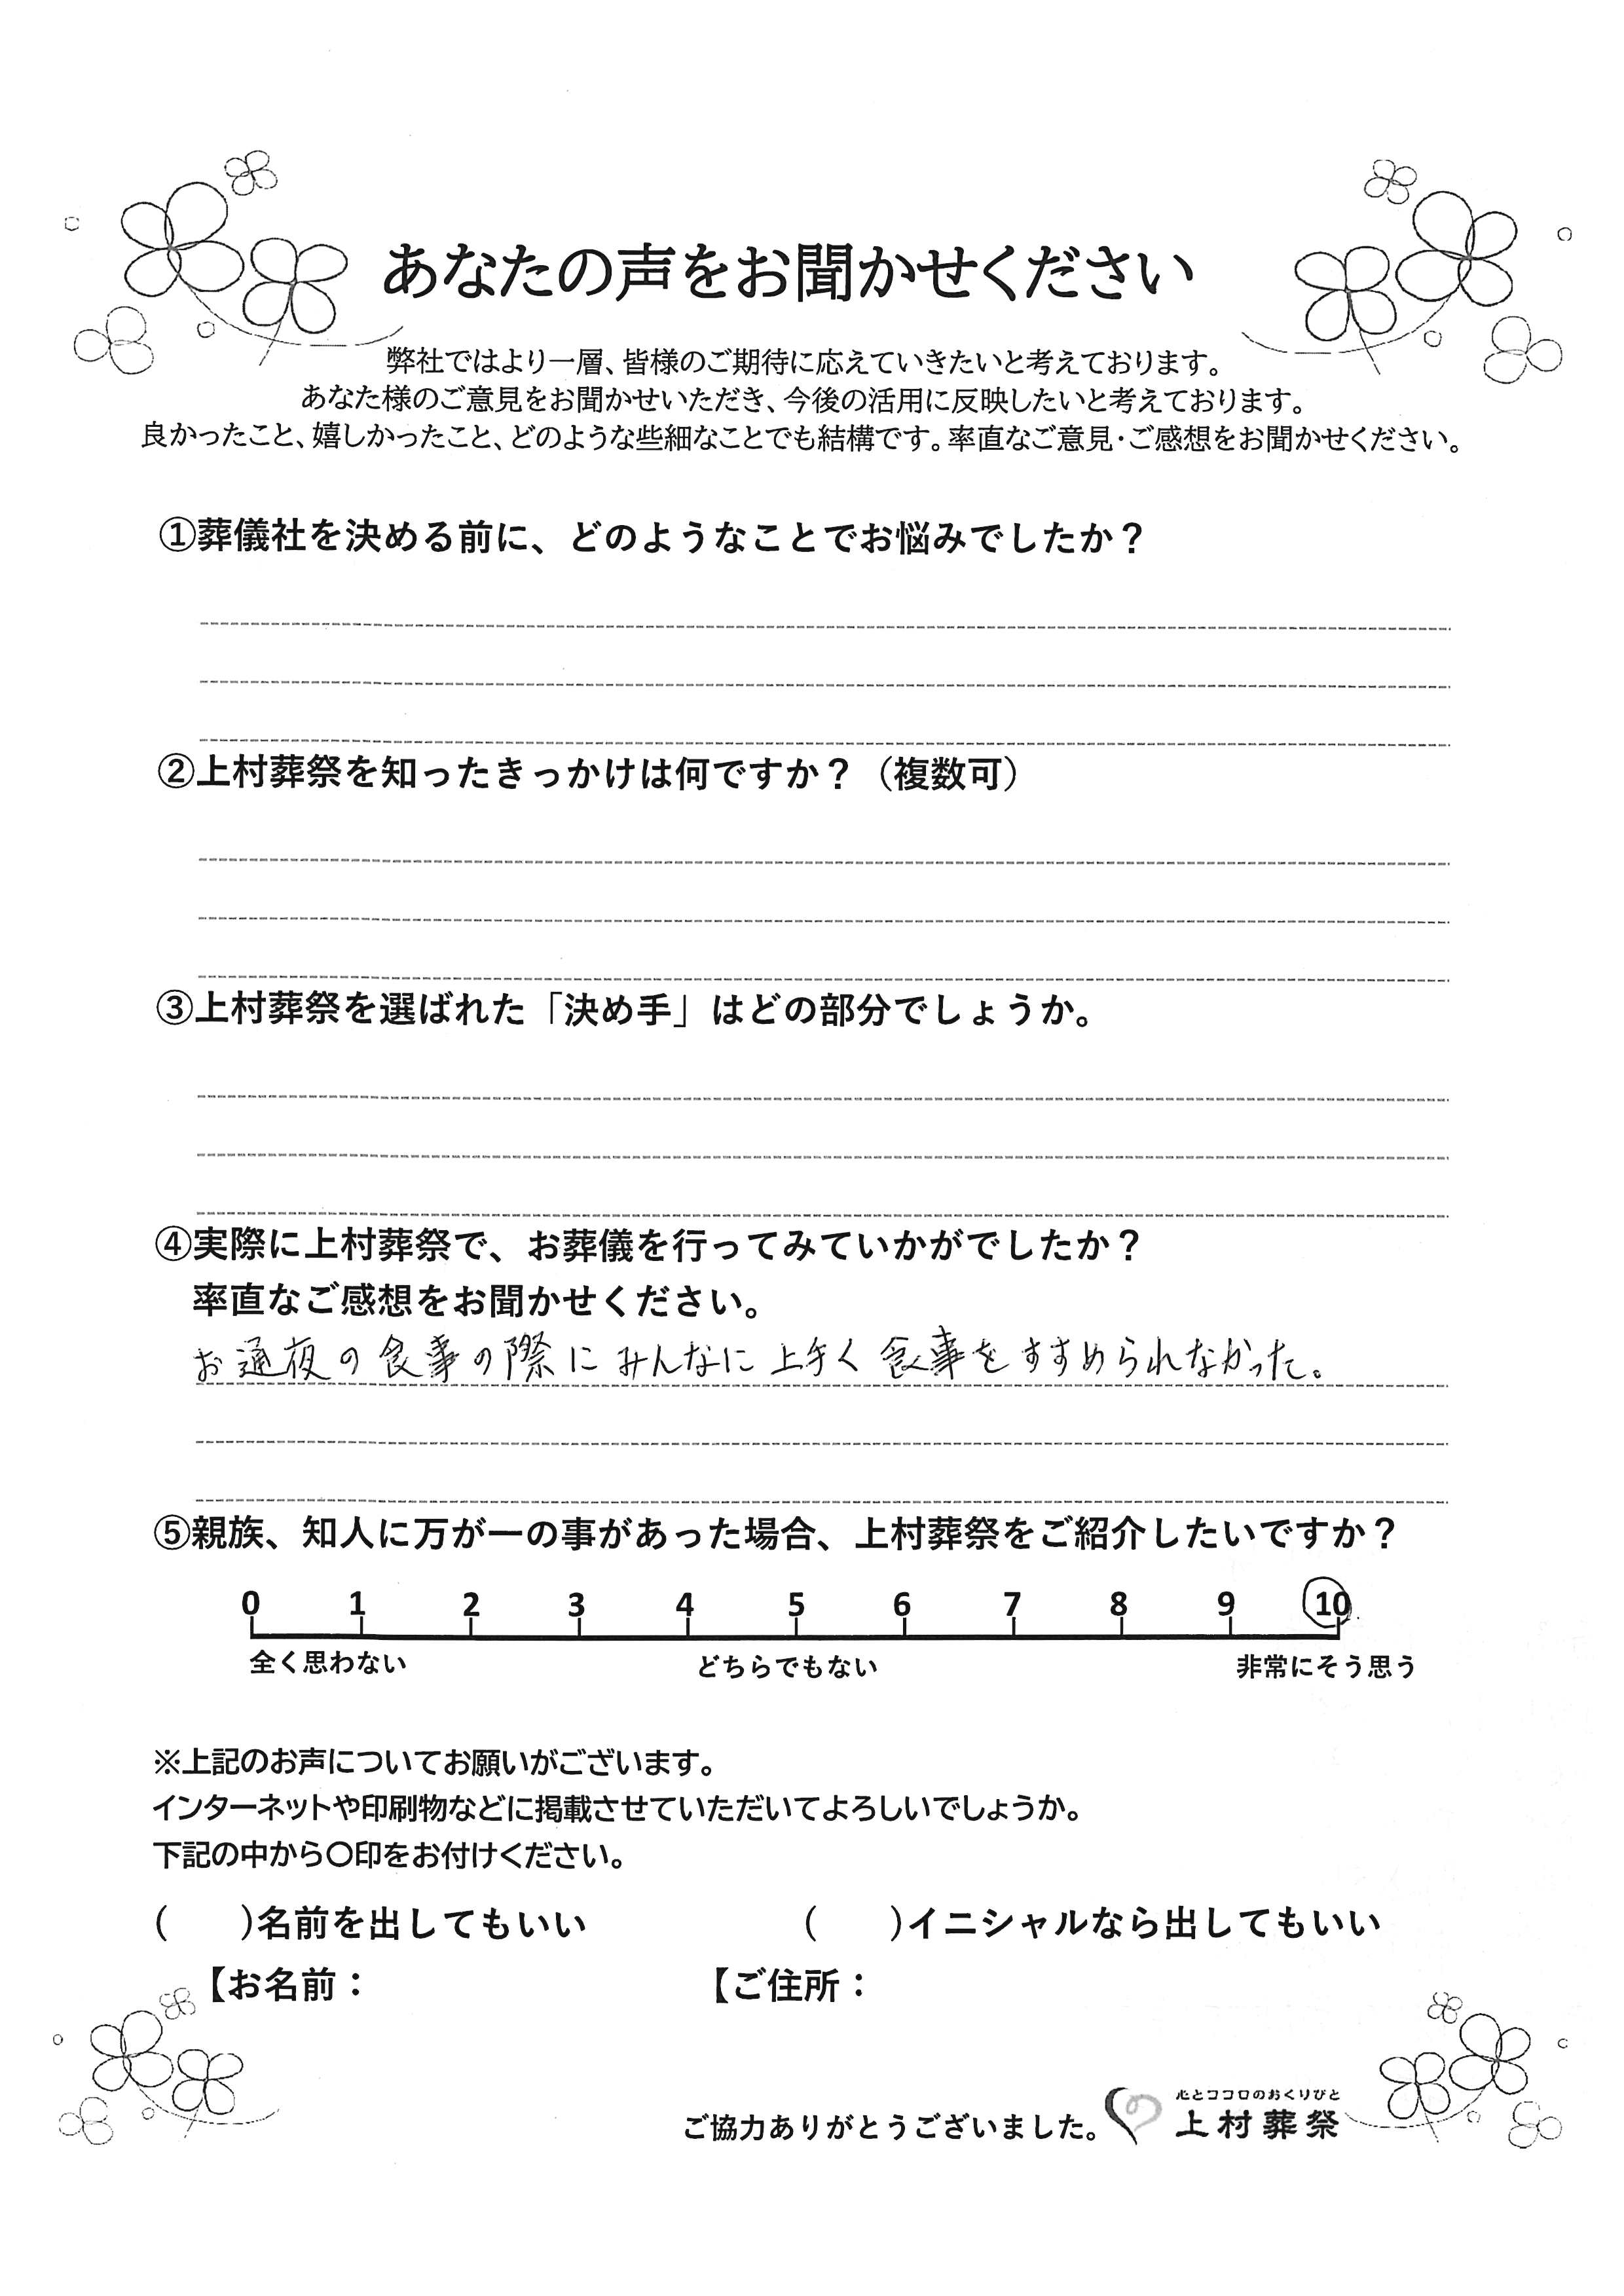 あなたの声をお聞かせください
弊社ではより一層、皆様のご期待に応えていきたいと考えております。
あなた様のご意見をお聞かせいただき、今後の活用に反映したいと考えております。
良かったこと、嬉しかったこと、どのような些細なことでも結構です。率直なご意見・ご感想をお聞かせください。
①葬儀社を決める前に、どのようなことでお悩みでしたか？
②上村葬祭を知ったきっかけは何ですか？（複数可）
③上村葬祭を選ばれた「決め手」はどの部分でしょうか。
④実際に上村葬祭で、お葬儀を行ってみていかがでしたか？
率直なご感想をお聞かせください。
お通夜の食事の際にみんなに上手く食事をすすめられなかった。
⑤親族、知人に万が一の事があった場合、上村葬祭をご紹介したいですか？
0 1 2 3 4 5 6 7 8 9 10
全く思わない どちらでもない 非常にそう思う
※上記のお声についてお願いがございます。
インターネットや印刷物などに掲載させていただいてよろしいでしょうか。
下記の中から〇印をお付けください。
(　　)名前を出してもいい (　　)イニシャルなら出してもいい
【お名前： 【ご住所：
心とココロのおくりびと
ご協力ありがとうございました。 上村葬祭